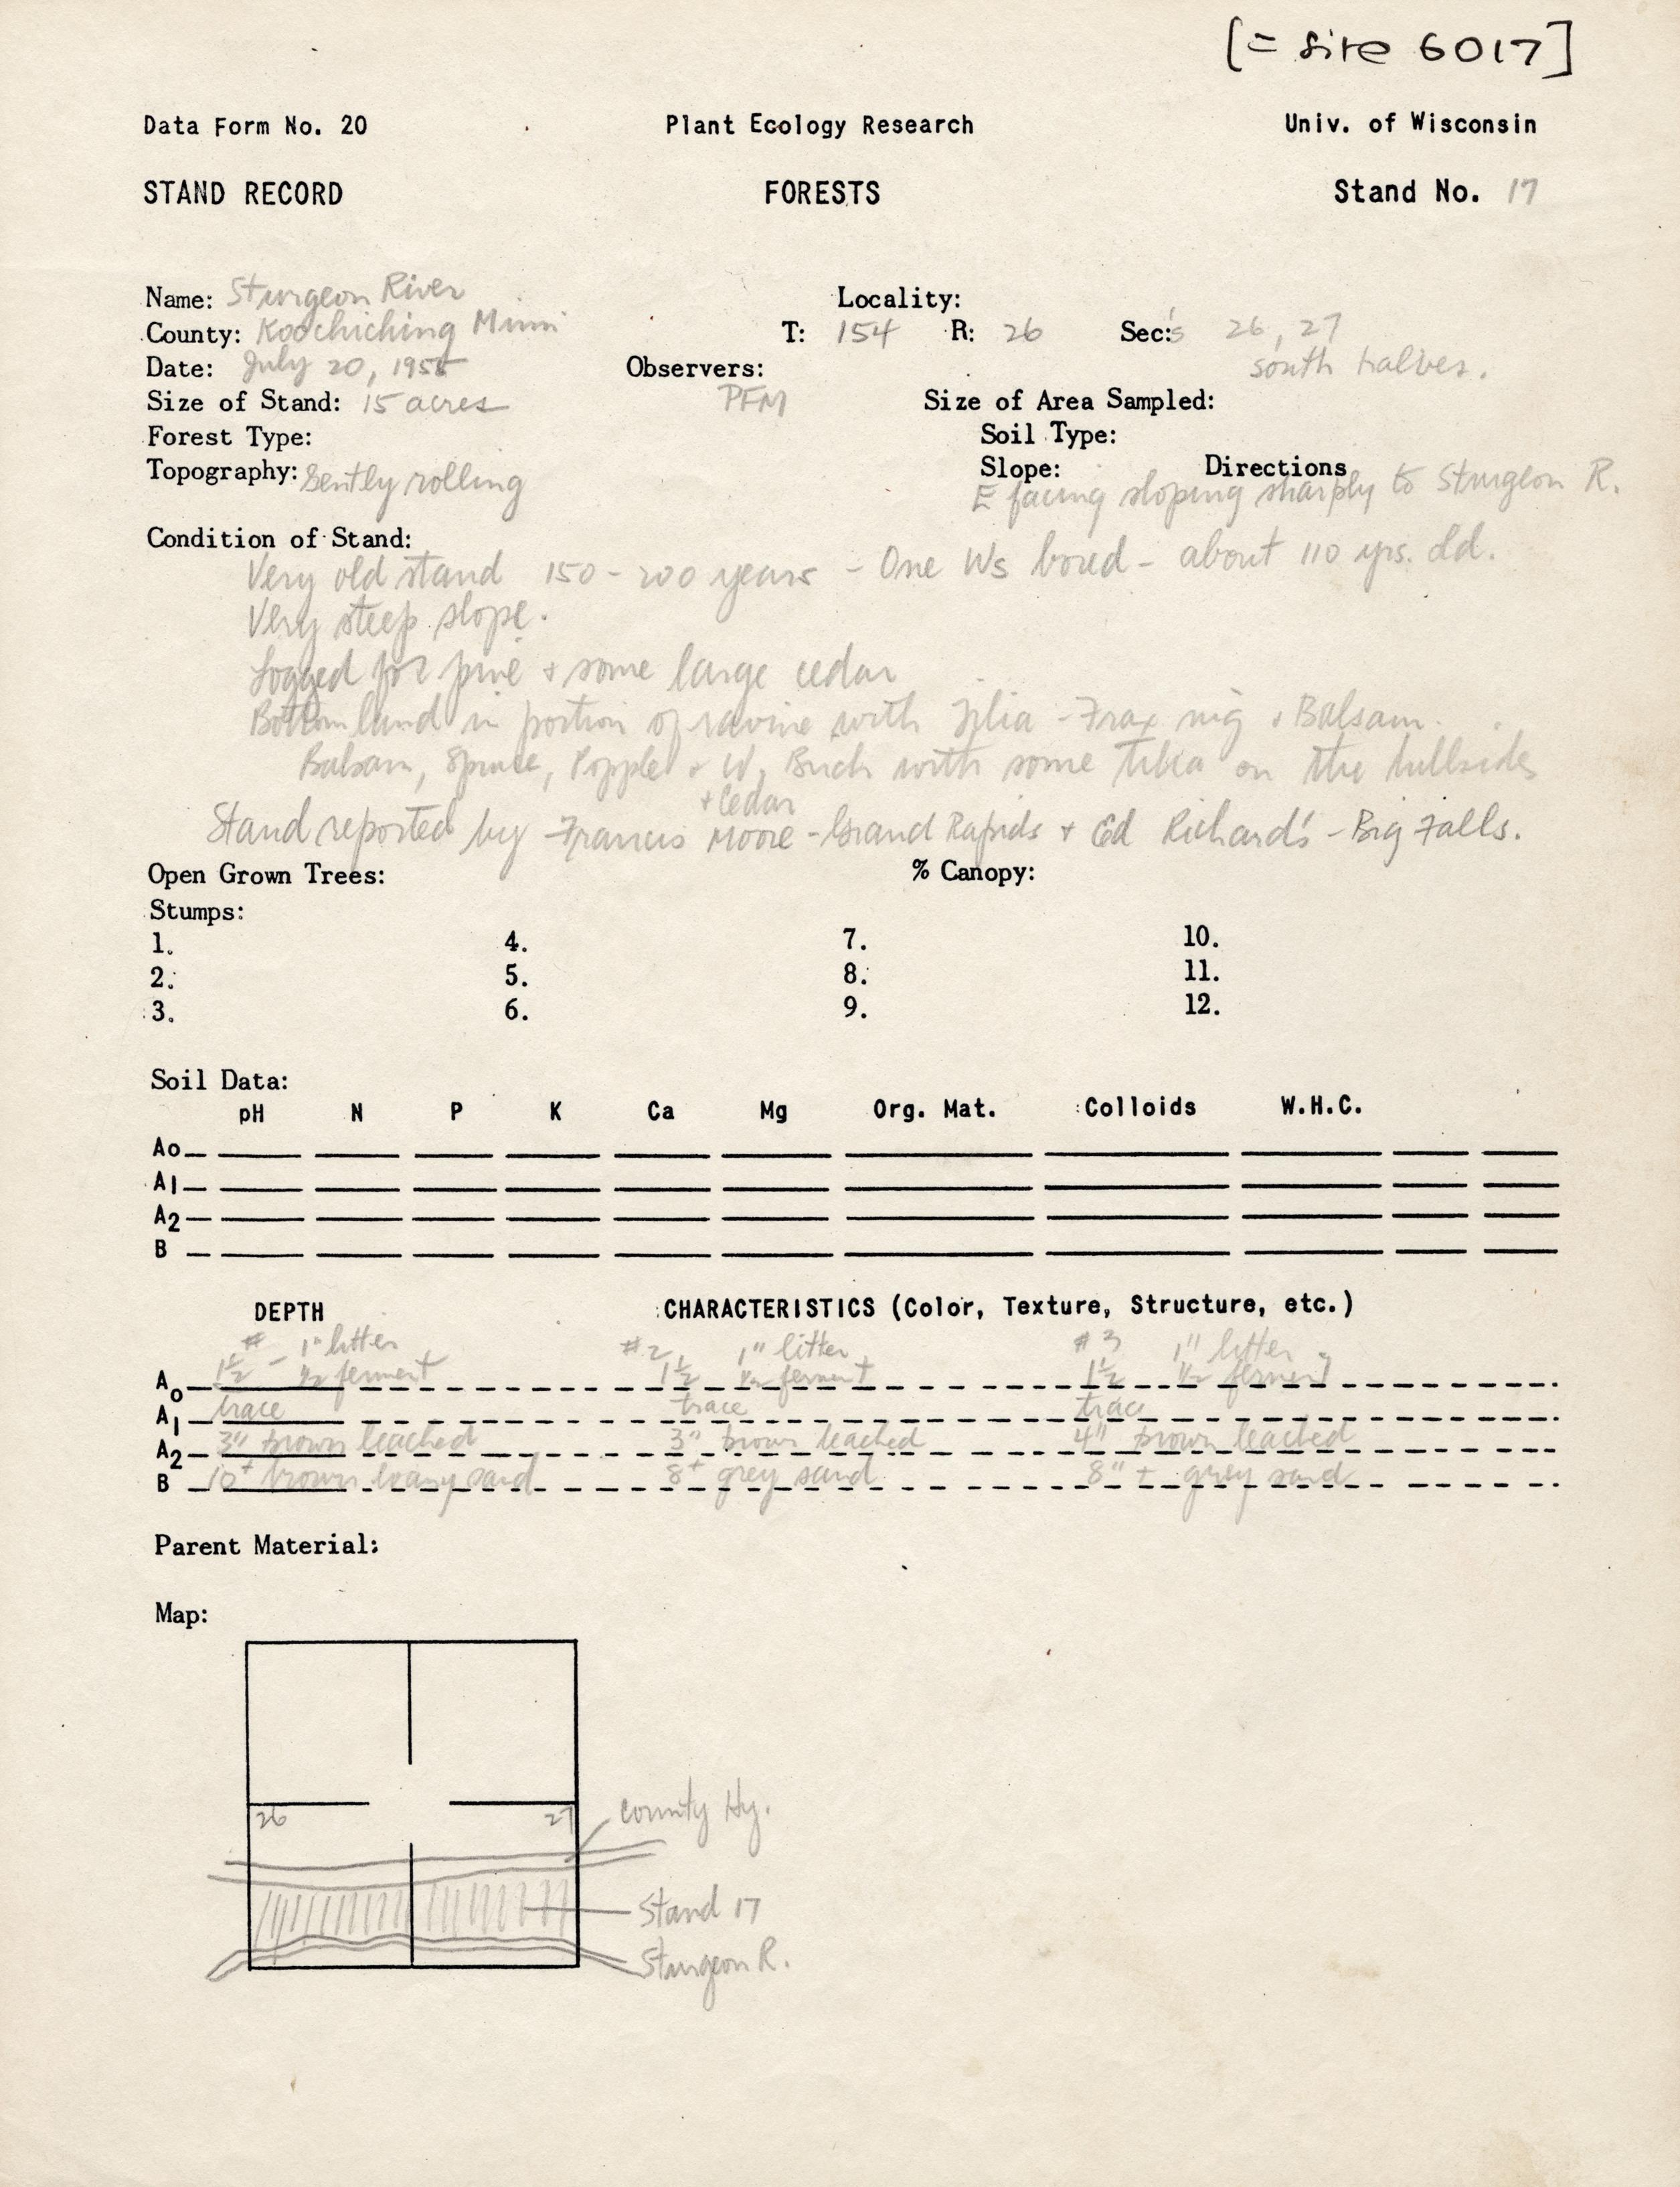 [= site 6017]
Data Form No. 20 Plant Ecology Research Univ. of Wisconsin
STAND RECORD FORESTS Stand No. 17
Name: Sturgeon River Locality:
County: Koochiching Minn T: 154 R: 26 Sec:'s 26, 27
Date: July 20, 1955 Observers: south halves.
Size of Stand: 15 acres PFM Size of Area Sampled:
Forest Type: Soil Type:
Topography: Gently rolling Slope: Directions
E facing sloping sharply to Sturgeon R.
Condition of Stand:
Very old stand 150-200 years - One Ws bored - about 110 yrs. old.
Very steep slope.
Logged for pine + some large cedar
Bottomland in portion of ravine with Tilia - Frax nig + Balsam.
Balsam, Spruce, Popple + W. Birch with some Tilia on the hillsides
+ Cedar
Stand reported by Francis Moore - Grand Rapids + Ed Richards - Big Falls.
Open Grown Trees: % Canopy:
Stumps:
1. 4. 7. 10.
2. 5. 8. 11.
3. 6. 9. 12.
Soil Data:
pH N P K Ca Mg Org. Mat. Colloids W.H.C.
Ao
A1
A2
B
DEPTH CHARACTERISTICS (Color, Texture, Structure, etc.)
# 1" litter #2 1" litter #3 1" litter
Ao 1½ - ½ ferment 1½ ½ ferment 1½ ½ ferment
A1 trace trace trace
A2 3" brown leached 3" brown leached 4" brown leached
B 10+ brown loamy sand 8+ grey sand 8"+ grey sand
Parent Material:
Map:
26 27 County Hy.
Stand 17
Sturgeon R.